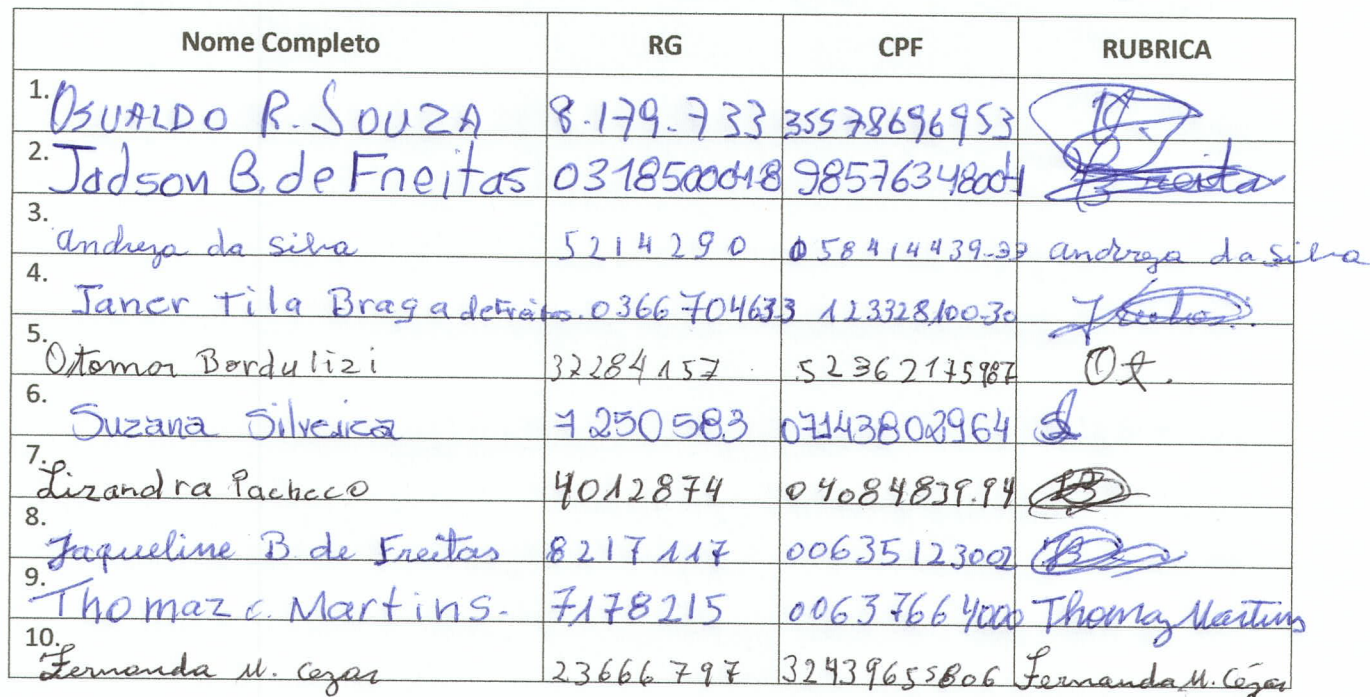 Nome Completo RG CPF RUBRICA
1. OSVALDO R. SOUZA 8.179.733 35578696953
2. Jadson B. de Freitas 0318500048 98576348004
3. Andreza da Silva 5214290 058414439-33 Andreza da Silva
4. Janer Tila Braga de Freitas. 0366704633 123328100-30
5. Otomar Bordulizi 32284157 52362175987 Ot.
6. Suzana Silveira 7250583 07143802964
7. Lizandra Pacheco 4012874 04084839.94
8. Jaqueline B. de Freitas 8217117 00635123002
9. Thomaz c. Martins. 7178215 00637664000 Thomaz Martins
10. Fernanda M. Cezar 23666797 32439655806 Fernanda M. Cézar